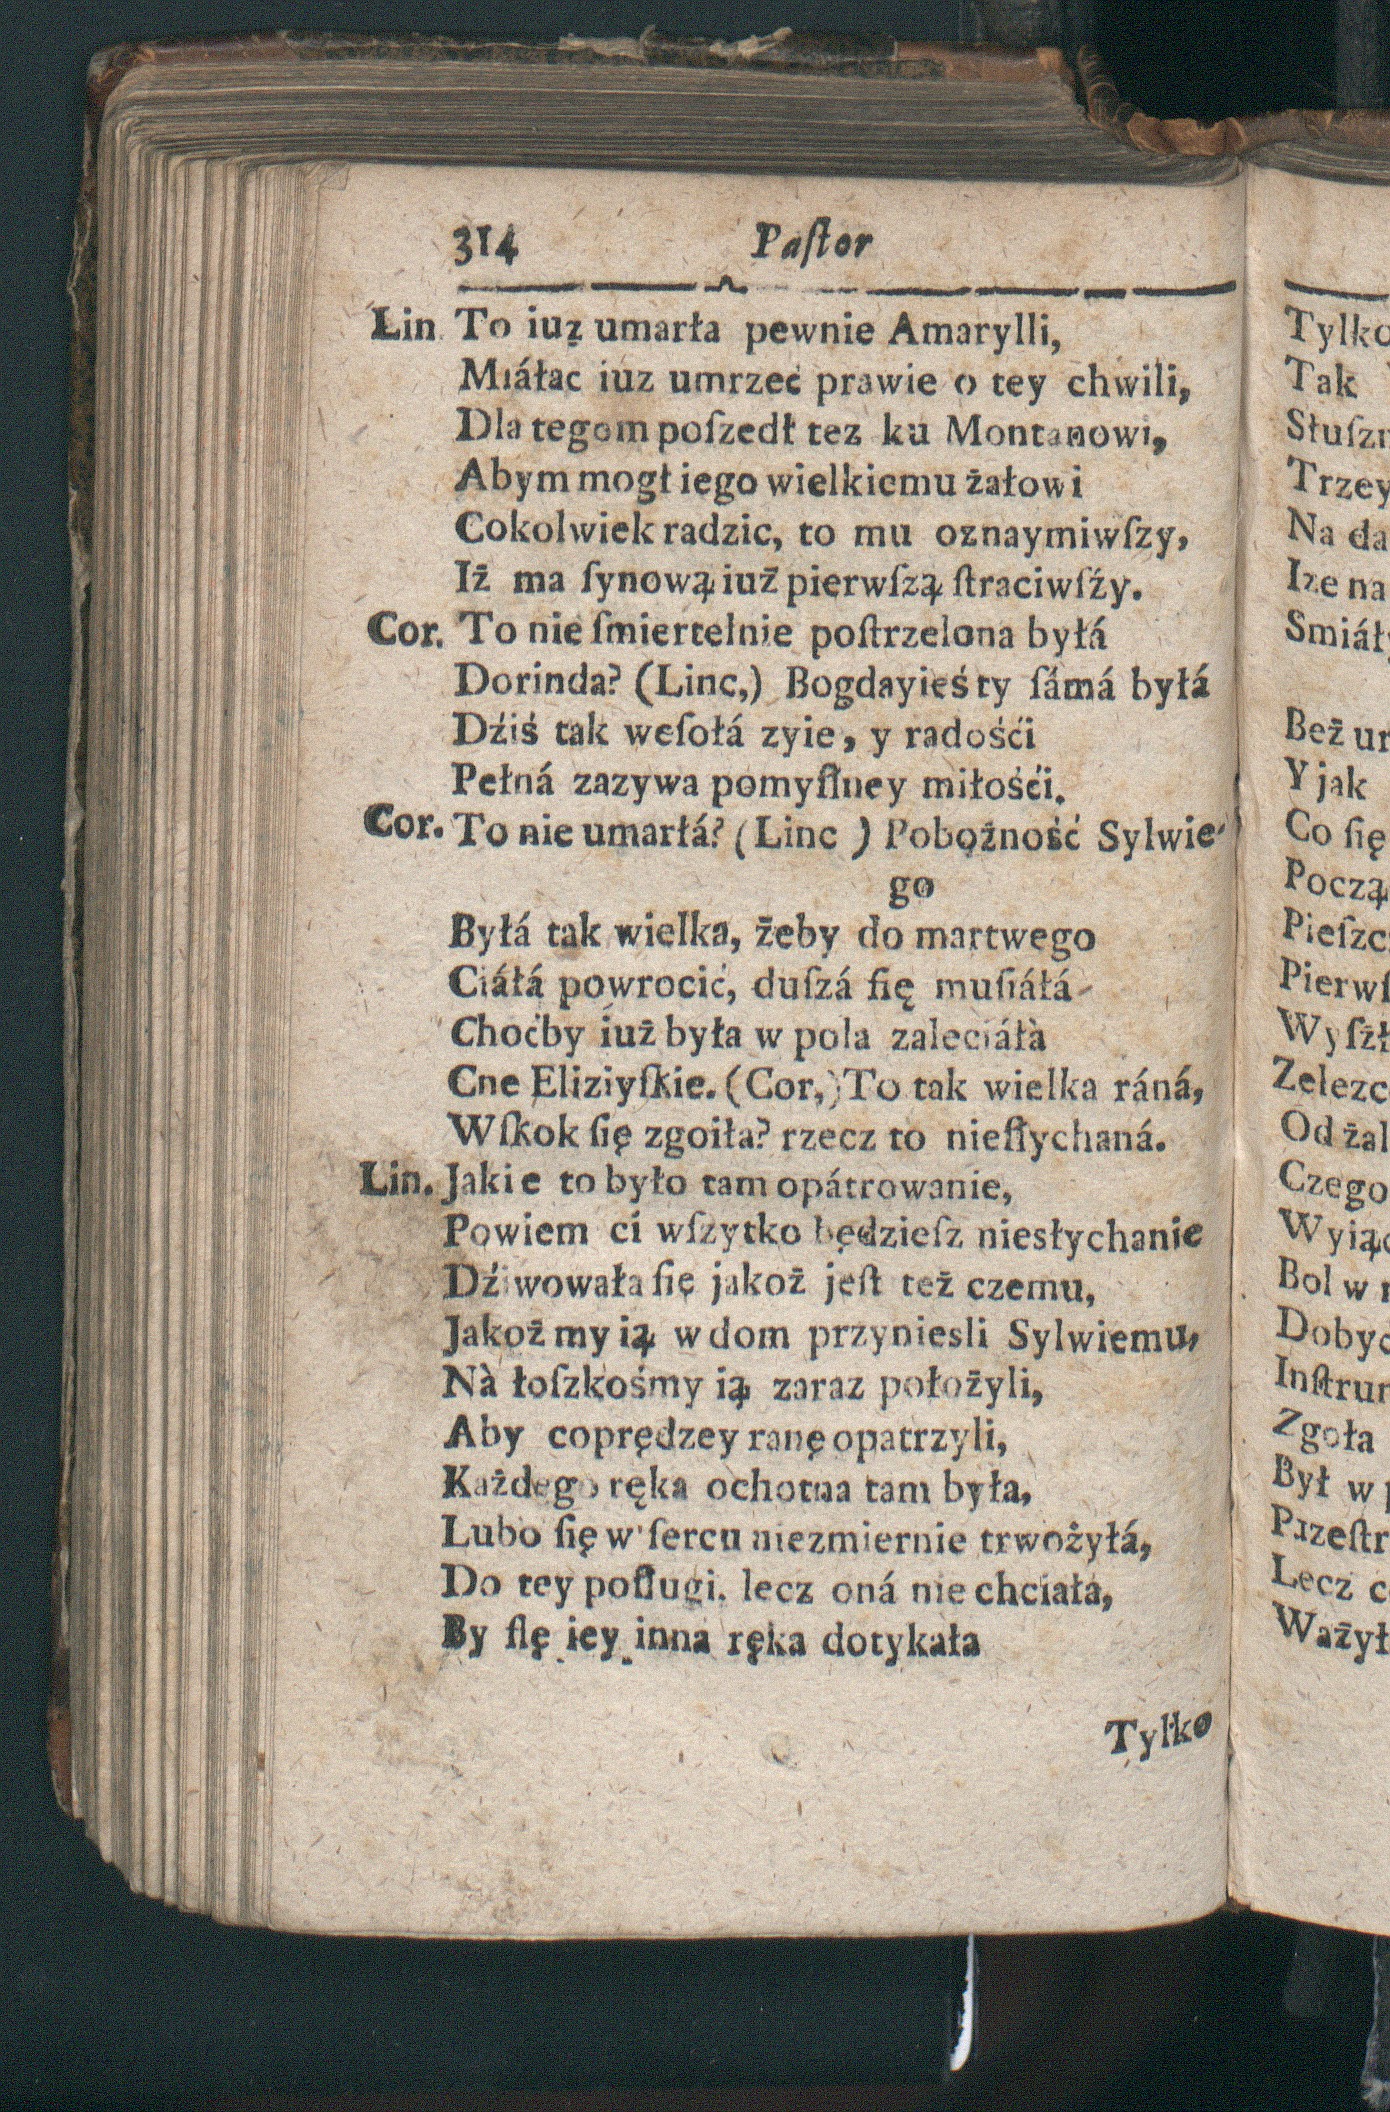 314 Paſtor
Łin To iuż umarła pewnie Amarylli,
Miáłac iuz umrzeć prawie o tey chwili,
Dla tegom poſzedł tez ku Montanowi,
Abym mogł iego wielkiemu żałowi
Cokolwiek radzic, to mu oznaymiwſzy,
Iż ma ſynową iuż pierwſzą ſtraciwſży.
Cor. To nie ſmiertelnie poſtrzelona byłá
Dorinda? (Linc,) Bogdayieś ty ſámá byłá
Dźiś tak weſołá zyie, y radośći
Pełná zazywa pomyſlney miłośći.
Cor. To nie umarłá? (Linc ) Pobożność Sylwie-
go
Byłá tak wielka, żeby do martwego
Ciáłá powrocić, duſzá ſię muſiáłá
Choćby iuż była w pola zaleciáłà
Cne Eliziyſkie. (Cor,) To tak wielka ráná,
Wſkok ſię zgoiła? rzecz to nieſłychaná.
Lin. Jakie to było tam opátrowanie,
Powiem ci wſzytko będzieſz niesłychanie
Dźiwowała ſię jakoż jeſt też czemu,
Jakoż my ią w dom przyniesli Sylwiemu,
Nà łoſzkośmy ią zaraz położyli,
Aby coprędzey ranę opatrzyli,
Każdego ręka ochotna tam była,
Lubo ſię w ſercu niezmiernie trwożyłá,
Do tey poſługi. lecz oná nie chciałá,
By ſlę iey inna ręka dotykała
Tylko
Tylko
Tak
Słuſzn
Trzey
Na da
Ize na
Smiáły
Beż ur
Y jak
Co ſię
Począ
Pieſzc
Pierwſ
Wyſżł
Zelezc
Od żal
Czego
Wyiąc
Bol w
Dobyc
Inſtrum
Zgoła
Był w p
Przeſtr
Lecz c
Ważył